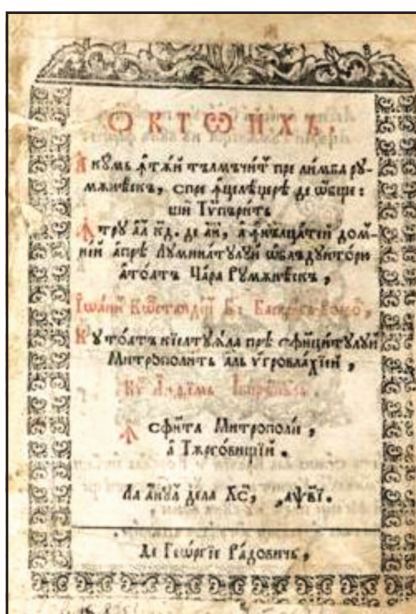 ОКТѠИХЪ,
Акꙋмь ꙟтѫй тълмъчит пре лимба рꙋ-
мѫнѣскъ, спре ꙟцелѣщерѣ де ѡбще:
ший Тѵпърит
Ꙟтрꙋ ал к҃д. де ай, а ꙟнълцатей дом-
ней апрѣ Лꙋминатꙋлꙋй ѡблъдꙋиторю
атоатъ Цара Рꙋмѫнѣскъ,
Іѡанн Кѡстандин Б: Басараб воевод,
Кꙋ тоатъ киелтꙋѧла прѣ сфинцитꙋлꙋй
Митрополить аль ꙋгровлахїей,
Кѵр Анѳімь
Ꙟ сфѫнта Митрополїе,
а Тѫрговищїй.
Ла анꙋл дела Х҃С, ҂аѱв҃і.
Де Геѡргїе Радовичь,